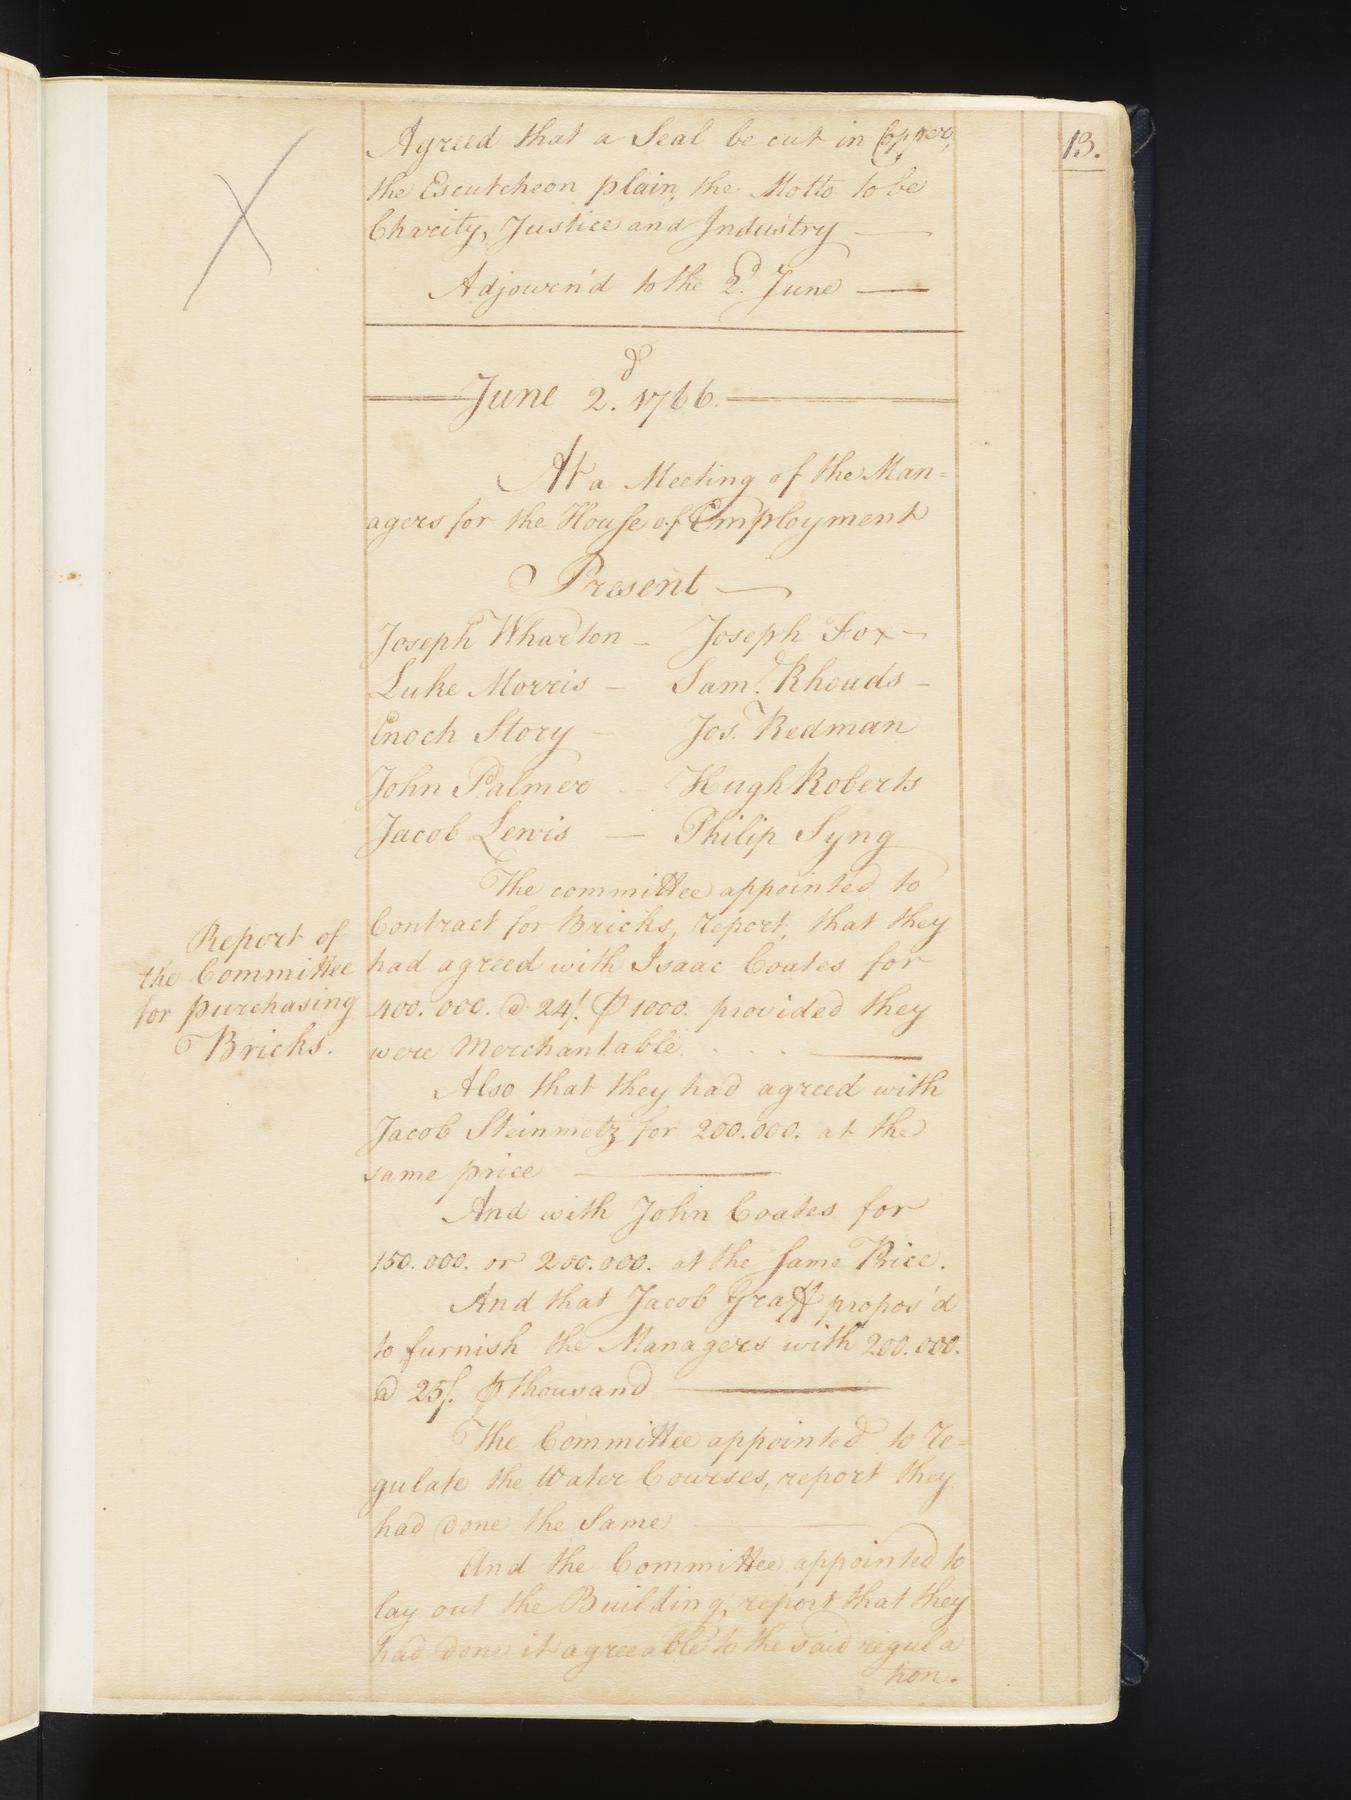 13.
Agreed that a Seal be cut in Copper,
the Escutcheon plain, the Motto to be
Charity, Justice and Industry —
Adjourn'd to the 2d. June —
June 2d. 1766.
At a Meeting of the Man=
agers for the House of Employment
Present —
Joseph Wharton — Joseph Fox —
Luke Morris — Saml. Rhoads —
Enoch Story — Jos. Redman
John Palmer — Hugh Roberts
Jacob Lewis — Philip Syng
The committee appointed to
Contract for Bricks, report, that they
had agreed with Isaac Coates for
400.000. @ 24/. ⅌ 1000. provided they
were Merchantable. . . . —
Report of
the Committee
for purchasing
Bricks.
Also that they had agreed with
Jacob Steinmetz for 200.000. at the
same price —
And with John Coates for
150.000. or 200.000. at the same Price.
And that Jacob Graff propos'd
to furnish the Managers with 200.000.
@ 25/. ⅌ thousand —
The Committee appointed to re=
gulate the Water Courses, report they
had done the Same —
And the Committee appointed to
lay out the Building, report that they
had done it agreeable to the said regula
tion.